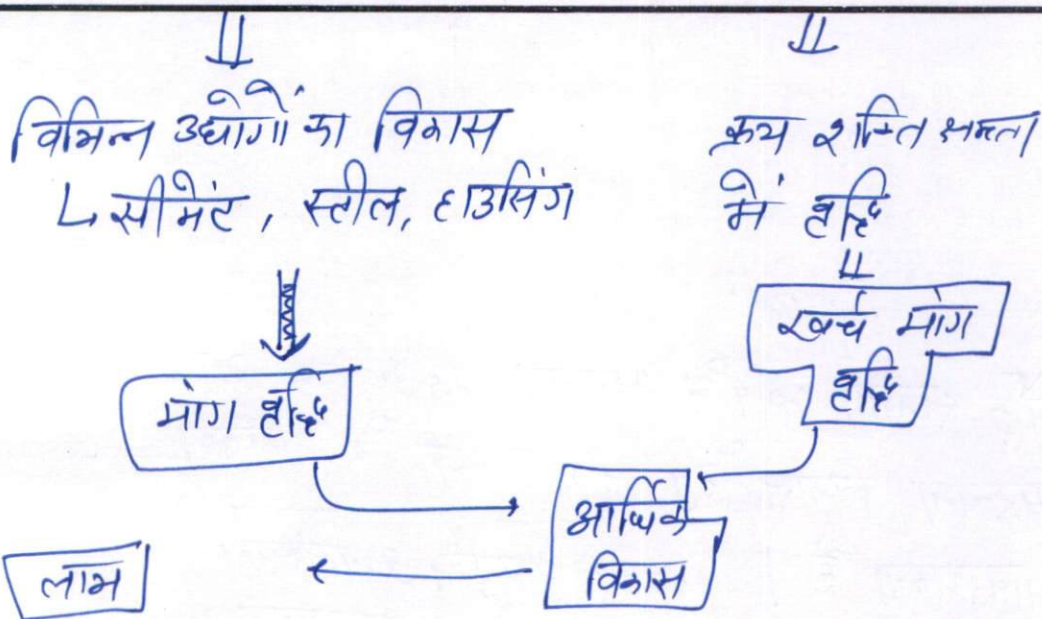 विभिन्न उद्योगों का विकास
↳ सीमेंट, स्टील, हाउसिंग
मांग वृद्धि
क्रय शक्ति क्षमता
में वृद्धि
खर्च मांग
वृद्धि
आर्थिक
विकास
लाभ